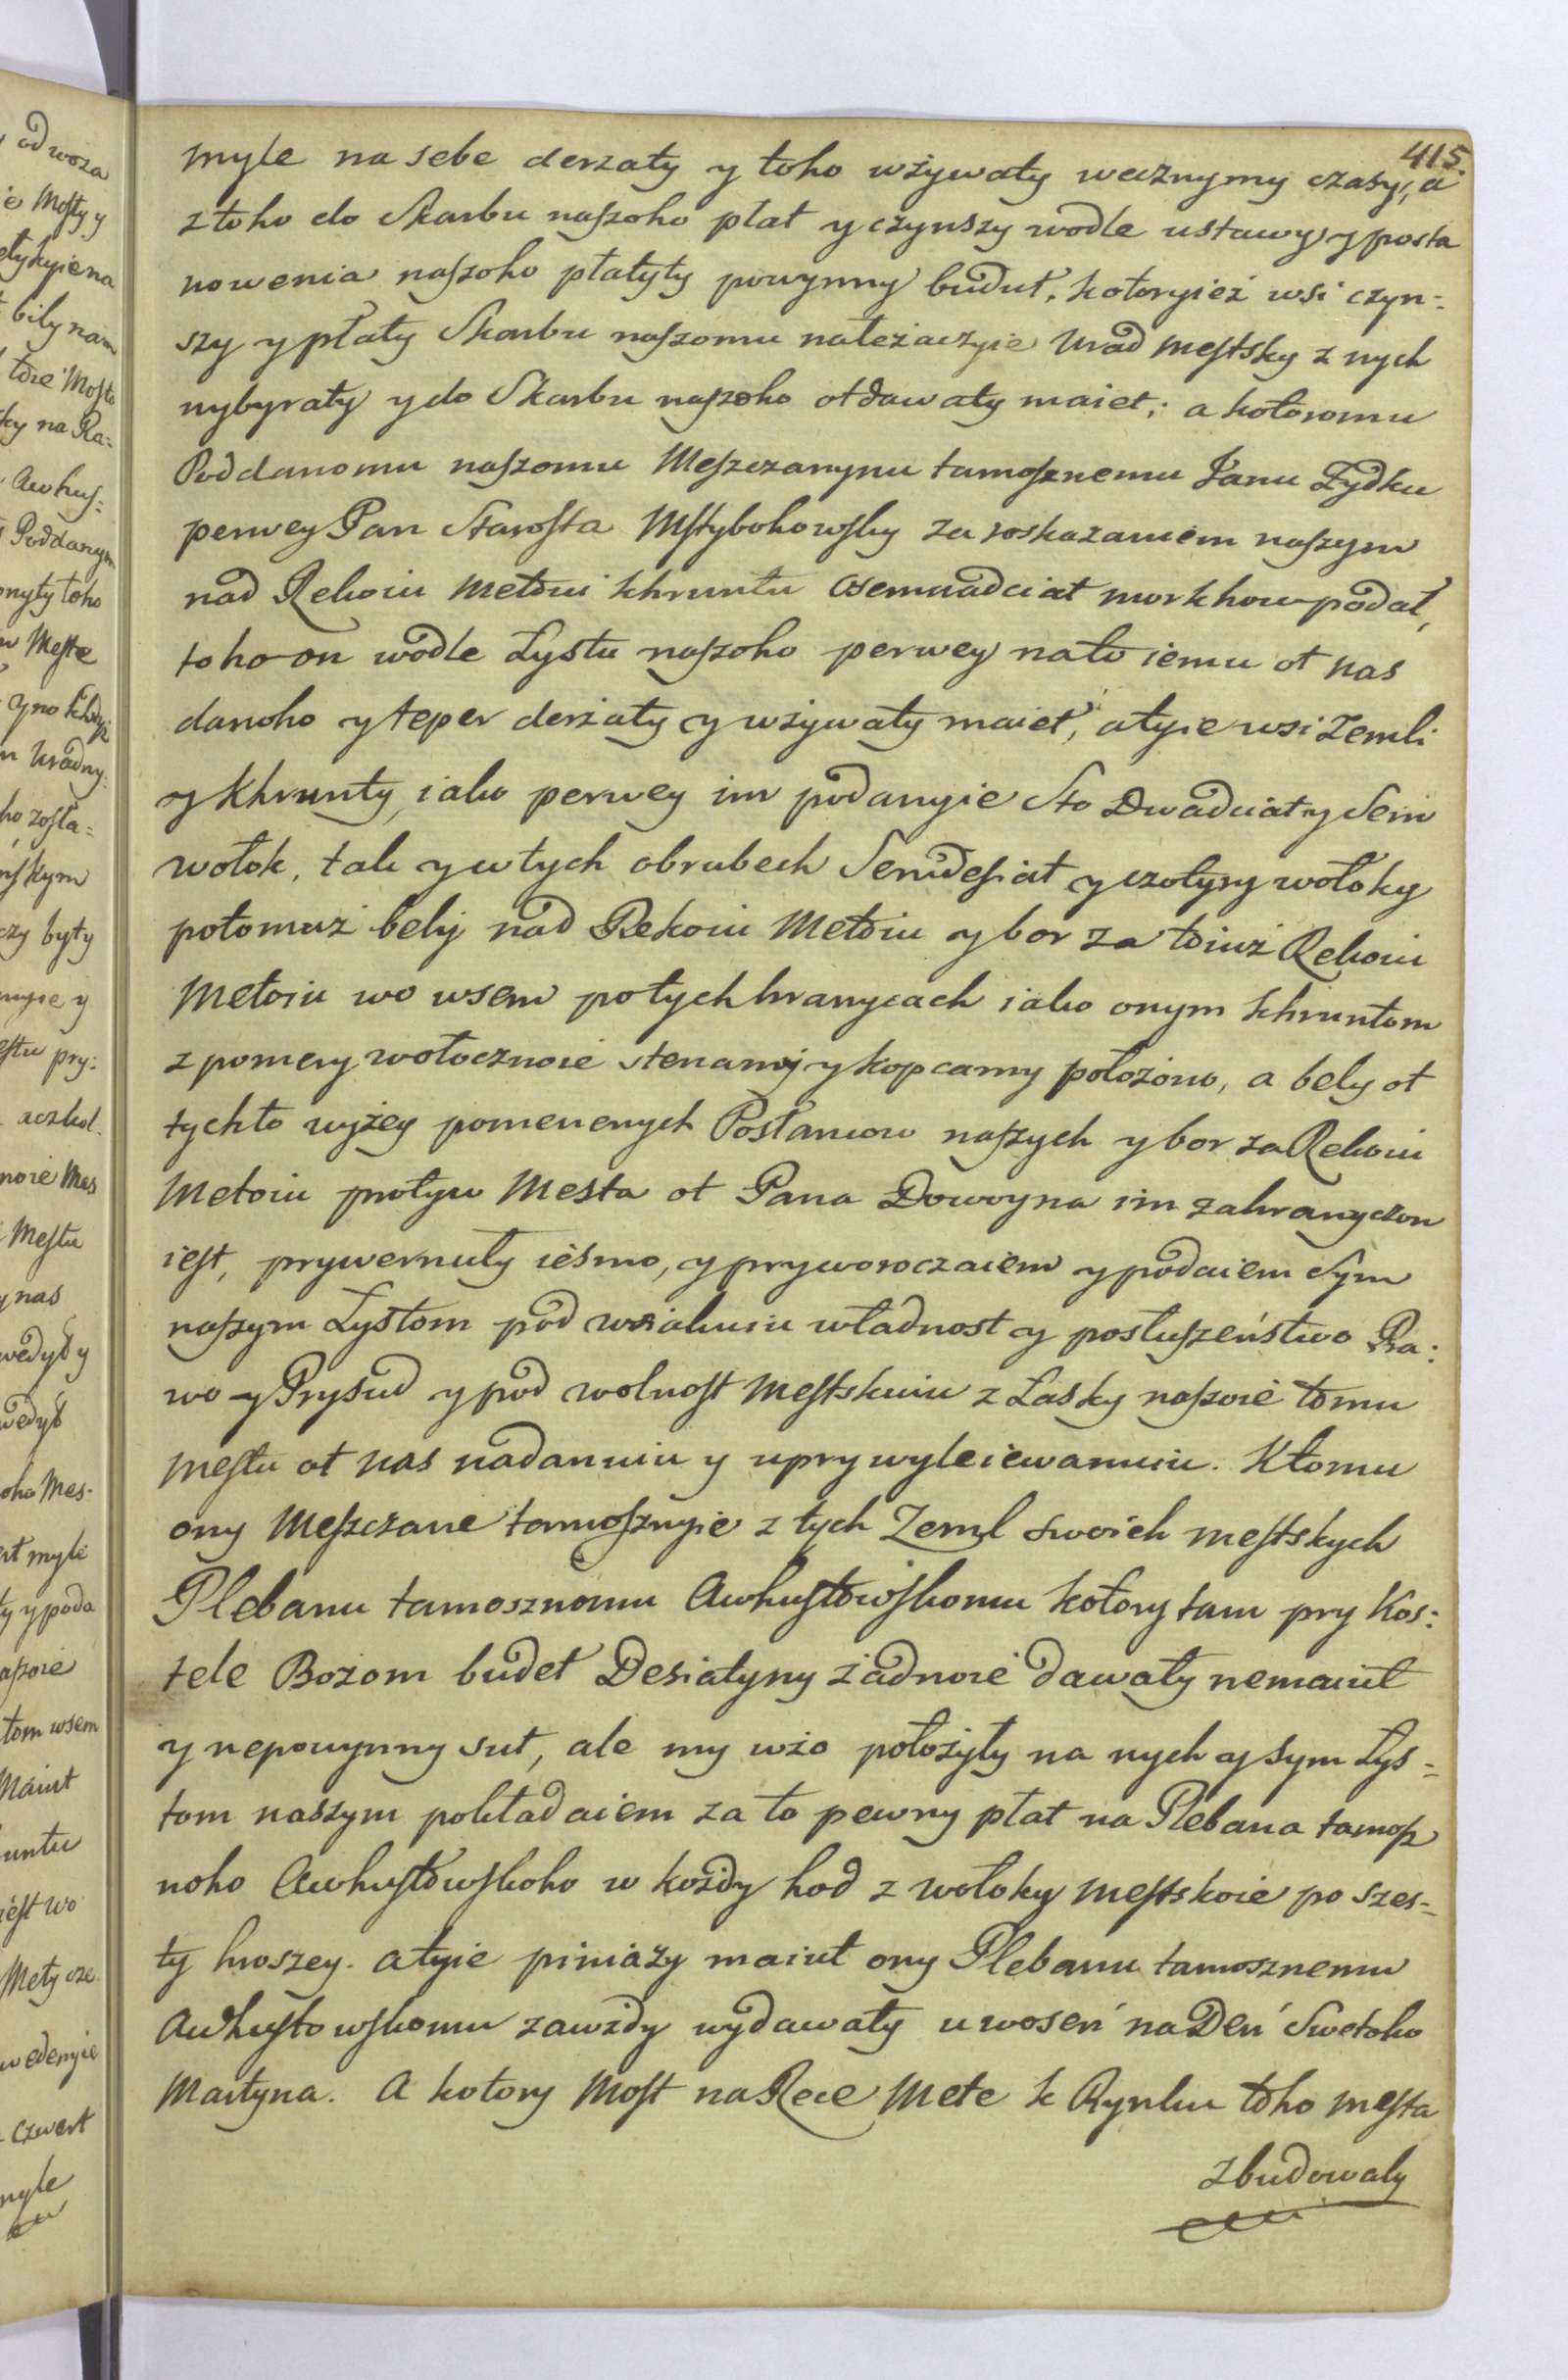 415.
myle na sebe derzaty y toho wżywaty wecznymy czasy, a
z toho do Skarbu naszoho płat y czynszy wodle ustawy y posta
nowenia naszoho płatyty powynny budut, kotoryież wsi czyn=
szy y płaty Skarbu naszomu należaczyie Urad mestsky z nych
wybyraty y do Skarbu naszoho otdawaty maiet; a kotoromu
Poddanomu naszomu Meszczanynu tamosznemu Janu Żydku
perwey Pan Starosta Mstybohowsky za roskazaniem naszym
nad Rekoiu Metoiu Khruntu Osemnadciat morkhow podał,
toho on wodle Lystu naszoho perwey nato iemu ot nas
danoho y teper derżaty y wżywaty maiet, a tyie wsi Zemli
y Khrunty, iako perwey im podanyie Sto Dwadciat y Sem
wołok, tak y w tych obrubech Semdesiat y czotyry wołoky
potomuż bely nad Rekoiu Metoiu y bor za toiuż Rekoiu
Metoiu wo wsem po tych hranycach iako onym Khruntom
z pomery wołocznoie stenamy y kopcamy położono, a bely ot
tychto wyżey pomenenych Posłancow naszych y bor za Rekoiu
Metoiu protyw Mesta ot Pana Dowoyna im zahranyczon
iest, prywernuly iesmo, y pryworoczaiem y podaiem Sym
naszym Lystom pod wsiakuiu władnost y posłuszeństwo Pra=
wo y Prysud y pod wolnost Mestskuiu z Łasky naszoie tomu
mestu ot nas nadanuiu y uprywyleiewanuiu. Ktomu
ony Meszczane tamosznyie z tych Zeml swoich mestskych
Plebanu tamosznomu Awhustowskomu kotory tam pry Kos=
tele Bożom budet Desiatyny żadnoie dawaty nemaiut
y nepowynny sut, ale my wżo położyły na nych y sym Lys=
tom naszym pokładaiem za to pewny płat na Plebana tamosz
noho Awhustowskoho w kożdy hod z wołoky mestskoie po szes=
ty hroszey. a tyie piniazy maiut ony Plebanu tamosznemu
Awhustowskomu zawżdy wydawaty u woseń na Deń Swetoho
Martyna. A kotory Most na Rece Mete k Rynku toho mesta
zbudowaly